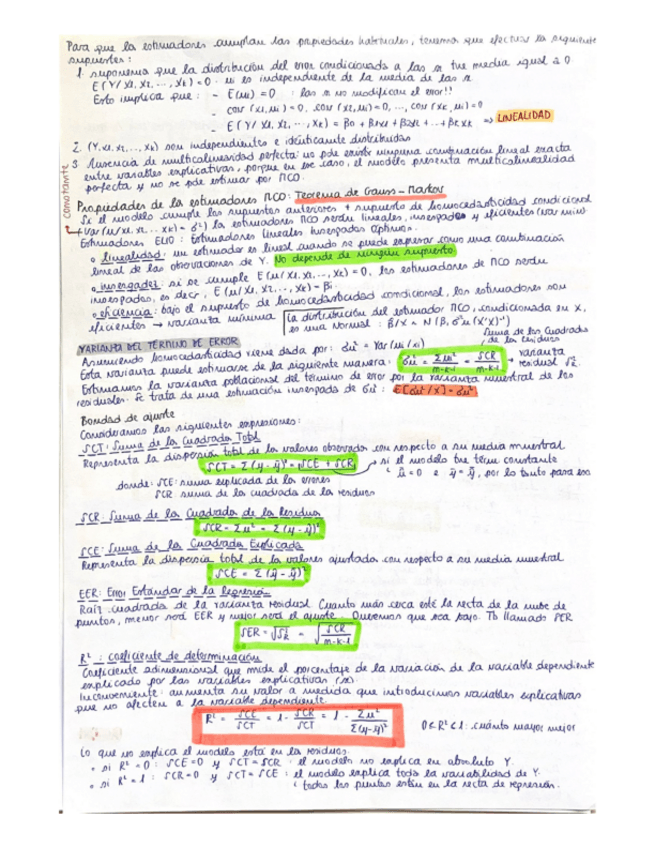 Para que los estimadores cumplan las propiedades habituales, tenemos que efectuar los siguientes
supuestos:
1. suponemos que la distribución del error condicionada a las x tne media igual a 0
E(Y/X1, X2, ..., Xk) = 0. ui es independiente de la media de las x
Esto implica que: - E(ui) = 0 : las x no modifican el error!!
- cov(x1,ui) = 0, cov(x2,ui)=0, ..., cov(xk,ui)=0
- E(Y/X1, X2, ..., Xk) = β0 + β1X1 + β2X2 + ... + βkXk => LINEALIDAD
2. (Y, X1, X2, ..., Xk) son independientes e idénticamente distribuidas
3. Ausencia de multicolinealidad perfecta: no pde existir ninguna combinación lineal exacta
entre variables explicativas, porque en ese caso, el modelo presenta multicolinealidad
perfecta y no se pde estimar por MCO.
constante
Propiedades de los estimadores MCO: Teorema de Gauss-Markov
Si el modelo cumple los supuestos anteriores + supuesto de homocedasticidad condicional
(Var(u/X1, X2, ..., Xk) = σ²) los estimadores MCO serán lineales, insesgados y eficientes (var min)
Estimadores ELIO: Estimadores Lineales Insesgados Óptimos.
• linealidad: un estimador es lineal cuando se puede expresar como una combinación
lineal de las observaciones de Y. No depende de ningún supuesto
• insesgadez: si se cumple E(u/X1, X2, ..., Xk) = 0, los estimadores de MCO serán
insesgados, es decir, E(u/X1, X2, ..., Xk) = βi
• eficiencia: bajo el supuesto de homocedasticidad condicional, los estimadores son
eficientes → varianza mínima
la distribución del estimador MCO, condicionada en X,
es una Normal: β/X ~ N(β, σ²u(X'X)⁻¹)
VARIANZA DEL TÉRMINO DE ERROR
Asumiendo homocedasticidad viene dada por: σu² = Var(ui/X)
Suma de los Cuadrados de los residuos
Esta varianza puede estimarse de la siguiente manera: σ̂u² = Σûi²/n-k-1 = SCR/n-k-1 → varianza residual S²R
Estimamos la varianza poblacional del término de error por la varianza muestral de los
residuales. Se trata de una estimación insesgada de σu²: E[σ̂u²/X] = σu²
Bondad de ajuste
Consideramos las siguientes expresiones:
SCT: Suma de los Cuadrados Total
Representa la dispersión total de los valores observados con respecto a su media muestral
SCT = Σ(y-ȳ)² = SCE + SCR → si el modelo tne térm constante
û = 0 e ȳ = ŷ, por lo tanto para eso
donde: SCE: suma explicada de los errores
SCR suma de los cuadrados de los residuos
SCR: Suma de los Cuadrados de los Residuos
SCR = Σu² = Σ(y-ŷ)²
SCE: Suma de los Cuadrados Explicada
Representa la dispersión total de los valores ajustados con respecto a su media muestral
SCE = Σ(ŷ-ȳ)²
EER: Error Estándar de la Regresión
Raíz cuadrada de la varianza residual. Cuanto más cerca esté la recta de la nube de
puntos, menor será EER y mejor será el ajuste. Queremos que sea bajo. Tb llamado SER
SER = √S²R = √SCR/n-k-1
R²: coeficiente de determinación
Coeficiente adimensional que mide el porcentaje de la variación de la variable dependiente
explicado por las variables explicativas (x).
Inconveniente: aumenta su valor a medida que introducimos variables explicativas
que no afecten a la variable dependiente.
R² = SCE/SCT = 1 - SCR/SCT = 1 - Σu²/Σ(y-ȳ)² 0<R²<1: cuánto mayor mejor
Lo que no explica el modelo está en los residuos.
• si R² = 0: SCE=0 y SCT=SCR: el modelo no explica en absoluto Y.
• si R² = 1: SCR=0 y SCT=SCE: el modelo explica toda la variabilidad de Y.
todos los puntos están en la recta de regresión.